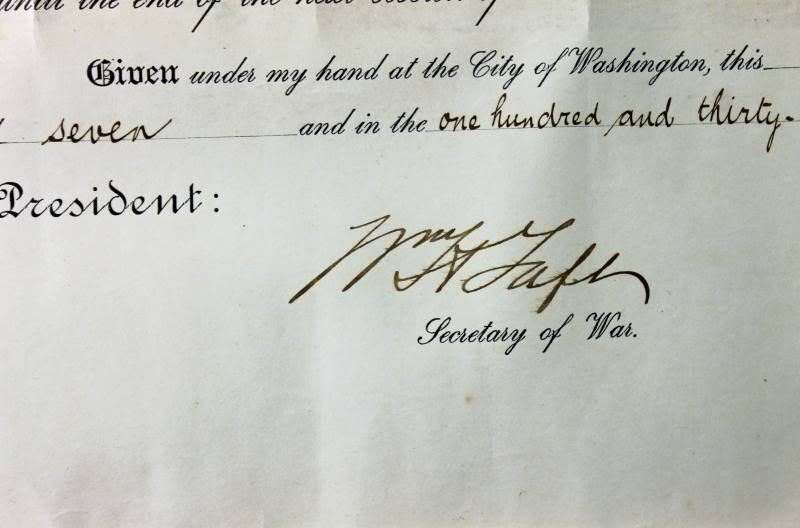 until the end of the next session of
Given under my hand at the City of Washington, this
seven and in the one hundred and thirty-
President:
Wm H Taft
Secretary of War.